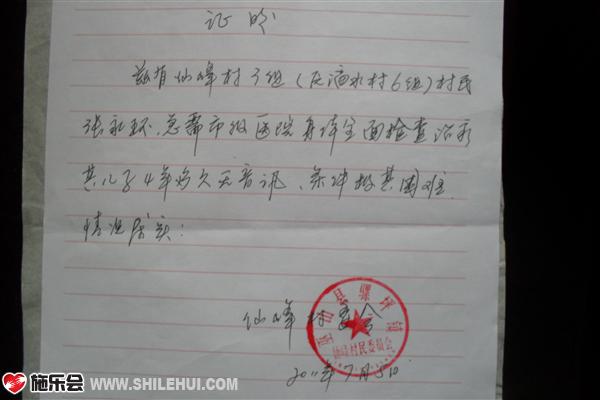 证明
兹有仙峰村3组(原滴水村6组)村民
张永环,急需市级医院身体全面检查治疗
其儿子4年多久无音讯、条件极其困难
情况属实!
仙峰村委会
巫山县骡坪镇
仙峰村民委员会
2011年7月5日
施乐会
WWW.SHILEHUI.COM